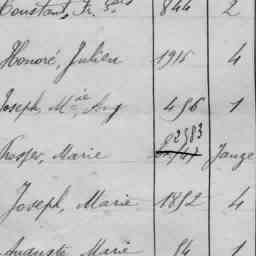 Constant, Fr. 844 2
Honoré, Julien 1915 4
Joseph, Mie Aug 496 1
Prosper, Marie 82583 Jauze
Joseph, Marie 1852 4
Auguste, Marie 84 1